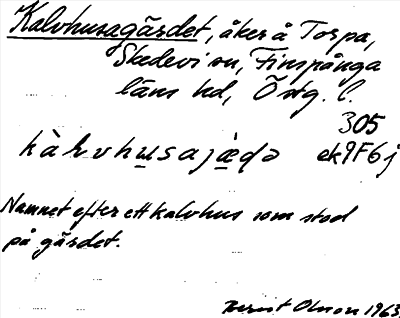 Kalvhusagärdet, åker å Torpa,
Skedevi sn, Finspånga
läns hd, Östg. l.
305
kàlvhu̲sajæ̀ḍə ek 9F6j
Namnet efter ett kalvhus som stod
på gärdet.
Bernt Olsson 1963